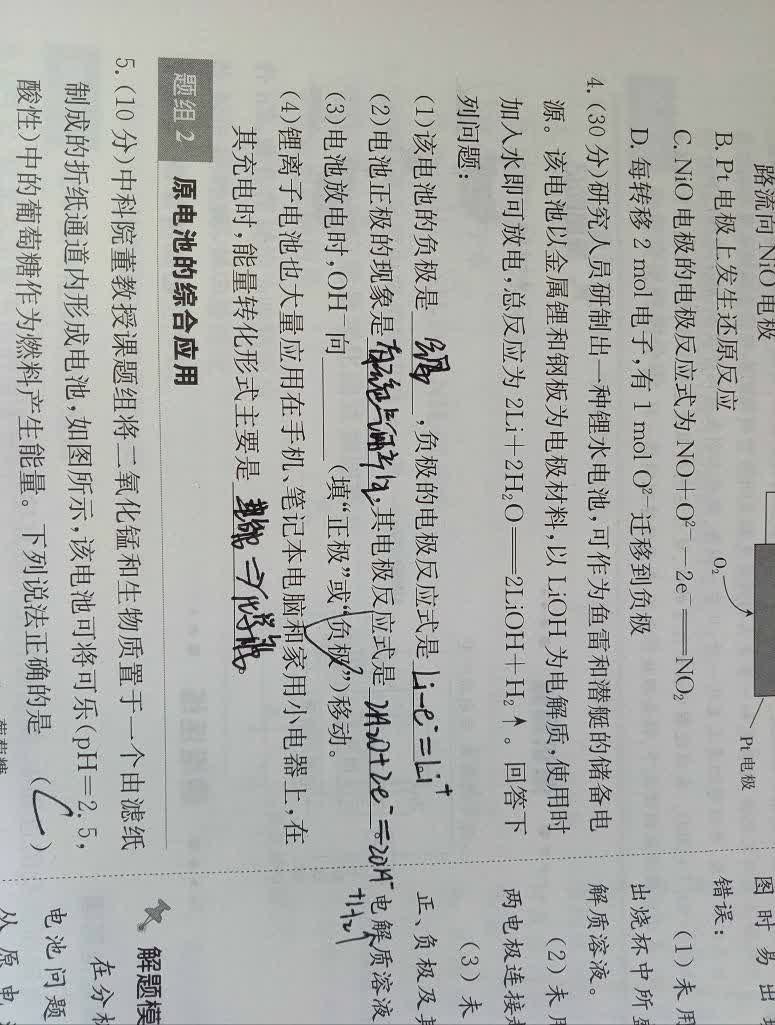 路流向 NiO 电极
B. Pt 电极上发生还原反应
C. NiO 电极的电极反应式为 NO+O²⁻-2e⁻══NO₂
D. 每转移 2 mol 电子,有 1 mol O²⁻迁移到负极
O₂
Pt 电极
4. (30 分)研究人员研制出一种锂水电池,可作为鱼雷和潜艇的储备电
源。该电池以金属锂和钢板为电极材料,以 LiOH 为电解质,使用时
加入水即可放电,总反应为 2Li+2H₂O══2LiOH+H₂↑。回答下
列问题:
(1)该电池的负极是 锂 ,负极的电极反应式是 Li-e⁻=Li⁺
(2)电池正极的现象是 有气泡 ,其电极反应式是 2H₂O+2e⁻=2OH⁻+H₂↑
(3)电池放电时,OH⁻向 (填“正极”或“负极”)移动。
(4)锂离子电池也大量应用在手机、笔记本电脑和家用小电器上,在
其充电时,能量转化形式主要是 电能⇒化学能。
题组 2 原电池的综合应用
5. (10 分)中科院董教授课题组将二氧化锰和生物质置于一个由滤纸
制成的折纸通道内形成电池,如图所示,该电池可将可乐(pH=2.5,
酸性)中的葡萄糖作为燃料产生能量。下列说法正确的是 (C)
图时易出
错误:
(1)未用
出烧杯中所
解质溶液。
(2)未用
两电极连接
(3)未
正、负极及其
电解质溶液
解题模
在分析
电池问题
从原电